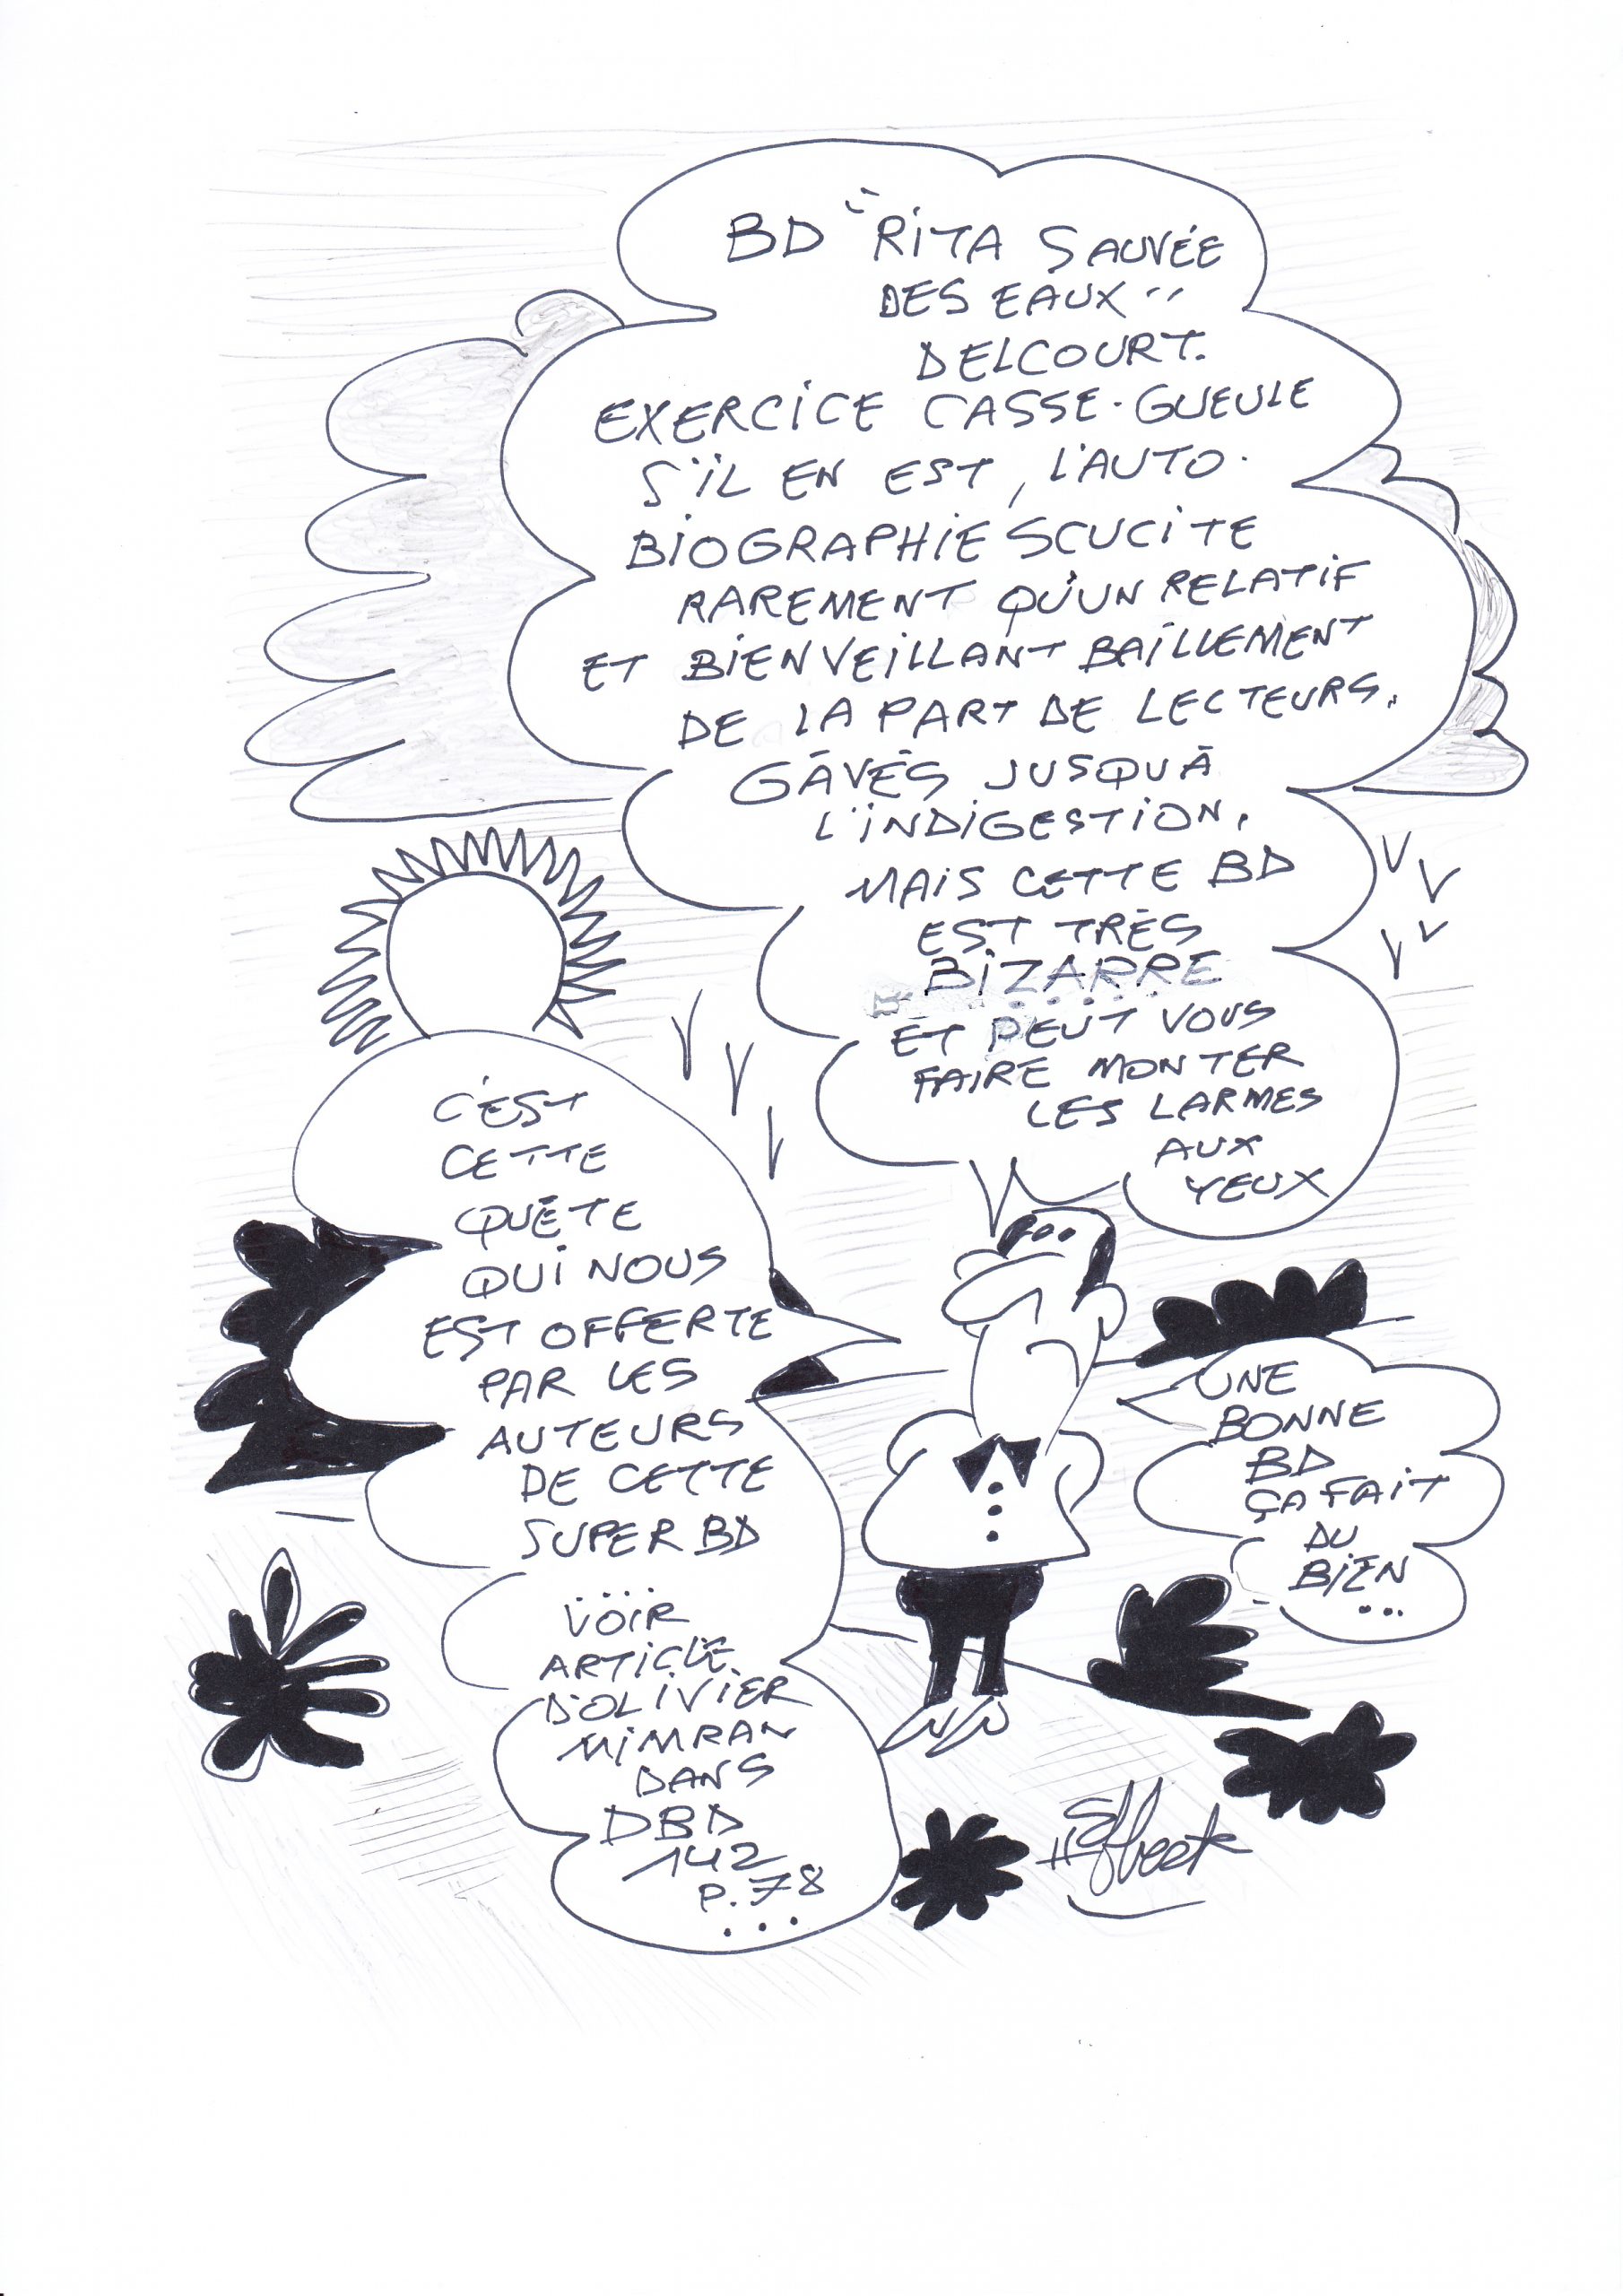 BD "RITA SAUVÉE
DES EAUX"
DELCOURT.
EXERCICE CASSE-GUEULE
S'IL EN EST, L'AUTO-
BIOGRAPHIE SCUCITE
RAREMENT QU'UN RELATIF
ET BIENVEILLANT BAILLEMENT
DE LA PART DE LECTEURS.
GÂVÉS JUSQU'À
L'INDIGESTION.
MAIS CETTE BD
EST TRÈS
BIZARRE
ET PEUT VOUS
FAIRE MONTER
LES LARMES
AUX
YEUX
C'EST
CETTE
QUÊTE
QUI NOUS
EST OFFERTE
PAR LES
AUTEURS
DE CETTE
SUPER BD
...
VOIR
ARTICLE
D'OLIVIER
MIMRAN
DANS
DBD
142
P.78
...
UNE
BONNE
BD
ÇA FAIT
DU
BIEN
...